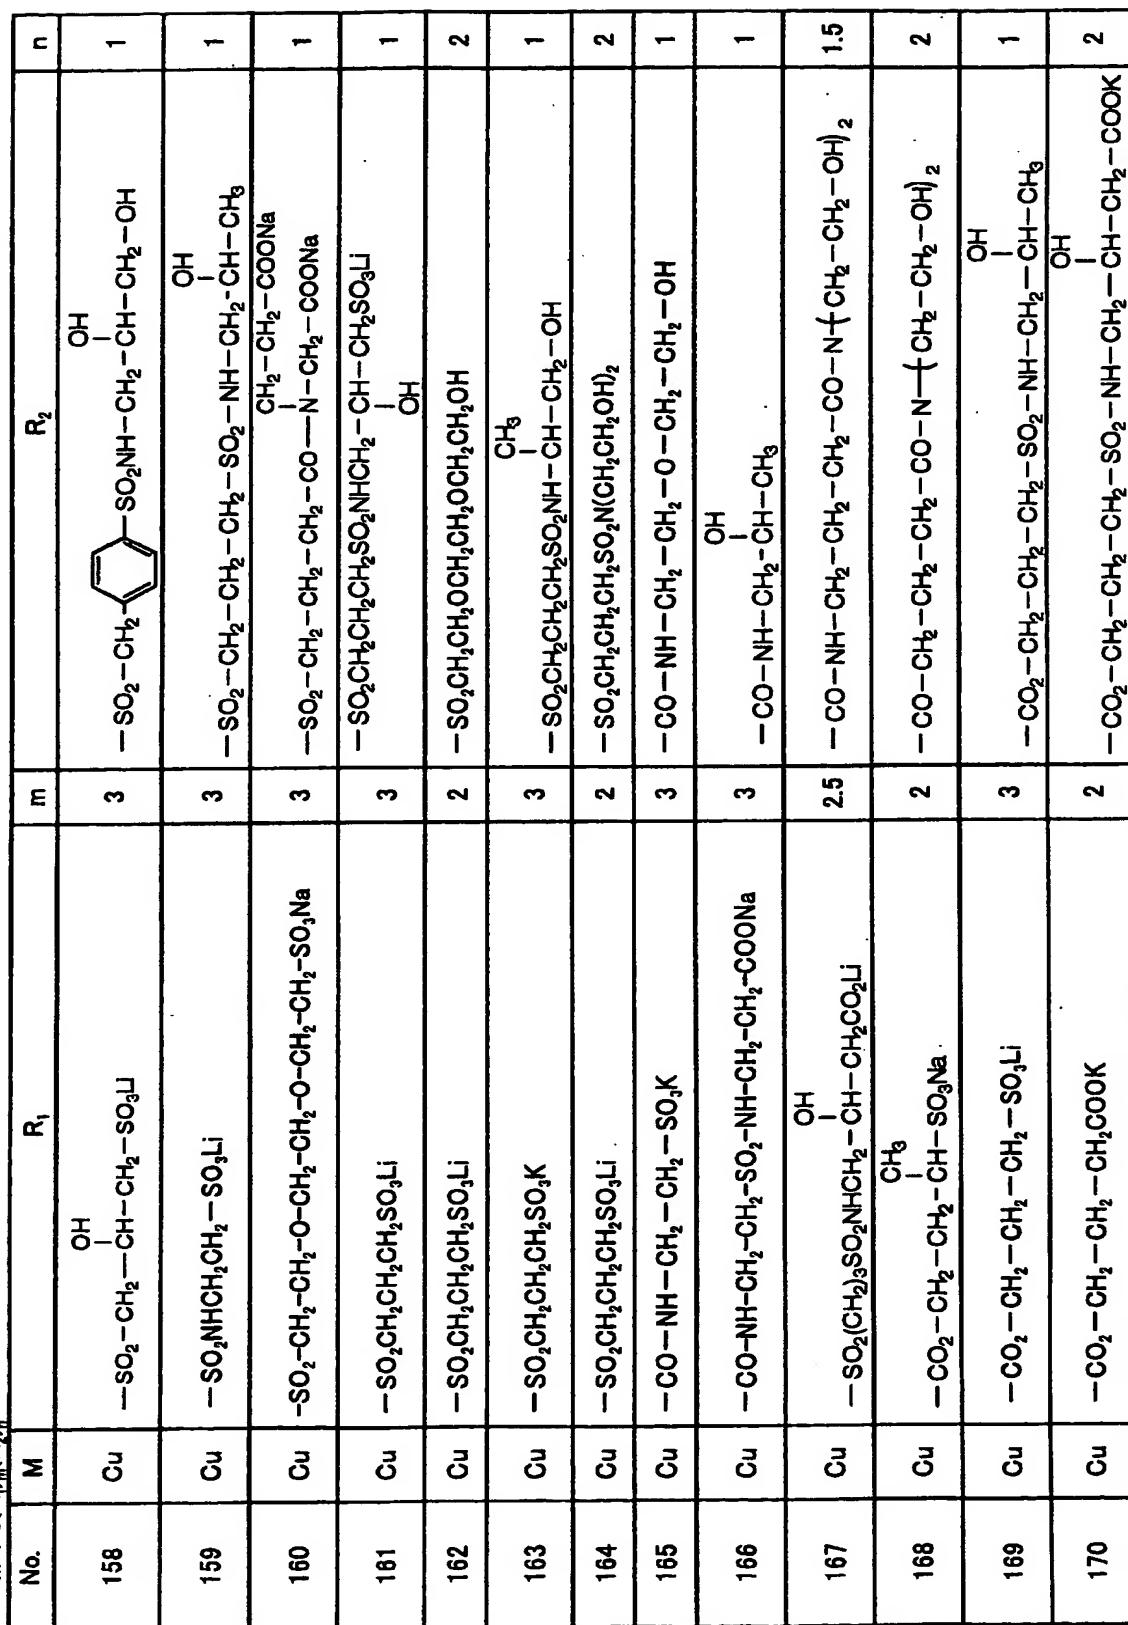 No. M R₁ m R₂ n
158 Cu —SO₂—CH₂—CH(OH)—CH₂—SO₃Li 3 —SO₂—CH₂—C₆H₄—SO₂NH—CH₂—CH(OH)—CH₂—OH 1
159 Cu —SO₂NHCH₂CH₂—SO₃Li 3 —SO₂—CH₂—CH₂—CH₂—SO₂—NH—CH₂-CH(OH)—CH₃ 1
160 Cu -SO₂-CH₂-CH₂-O-CH₂-CH₂-O-CH₂-CH₂-SO₃Na 3 —SO₂—CH₂—CH₂—CH₂—CO—N(CH₂—CH₂—COONa)—CH₂—COONa 1
161 Cu —SO₂CH₂CH₂CH₂SO₃Li 3 —SO₂CH₂CH₂CH₂SO₂NHCH₂—CH(OH)—CH₂SO₃Li 1
162 Cu —SO₂CH₂CH₂CH₂SO₃Li 2 —SO₂CH₂CH₂OCH₂CH₂OCH₂CH₂OH 2
163 Cu —SO₂CH₂CH₂CH₂SO₃K 3 —SO₂CH₂CH₂CH₂SO₂NH—CH(CH₃)—CH₂—OH 1
164 Cu —SO₂CH₂CH₂CH₂SO₃Li 2 —SO₂CH₂CH₂CH₂SO₂N(CH₂CH₂OH)₂ 2
165 Cu —CO—NH—CH₂—CH₂—SO₃K 3 —CO—NH—CH₂—CH₂—O—CH₂—CH₂—OH 1
166 Cu —CO—NH—CH₂-CH₂-SO₂-NH-CH₂-CH₂-COONa 3 —CO—NH—CH₂—CH(OH)—CH₃ 1
167 Cu —SO₂(CH₂)₃SO₂NHCH₂—CH(OH)—CH₂CO₂Li 2.5 —CO—NH—CH₂—CH₂—CH₂—CO—N—(CH₂—CH₂—OH)₂ 1.5
168 Cu —CO₂—CH₂—CH₂—CH(CH₃)—SO₃Na 2 —CO—CH₂—CH₂—CH₂—CO—N—(CH₂—CH₂—OH)₂ 2
169 Cu —CO₂—CH₂—CH₂—CH₂—SO₃Li 3 —CO₂—CH₂—CH₂—CH₂—SO₂—NH—CH₂—CH(OH)—CH₃ 1
170 Cu —CO₂—CH₂—CH₂—CH₂COOK 2 —CO₂—CH₂—CH₂—CH₂—SO₂—NH—CH₂—CH(OH)—CH₂—COOK 2